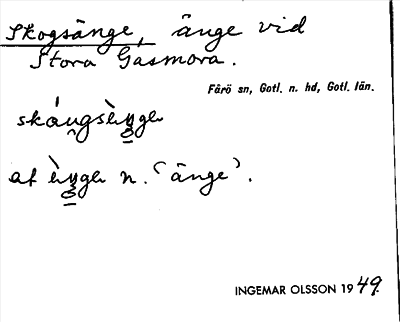 Skogsänge, änge vid
Stora Gåsmora.
Fårö sn, Gotl. n. hd, Gotl. län.
af
n. 'änge'.
INGEMAR OLSSON 1949.